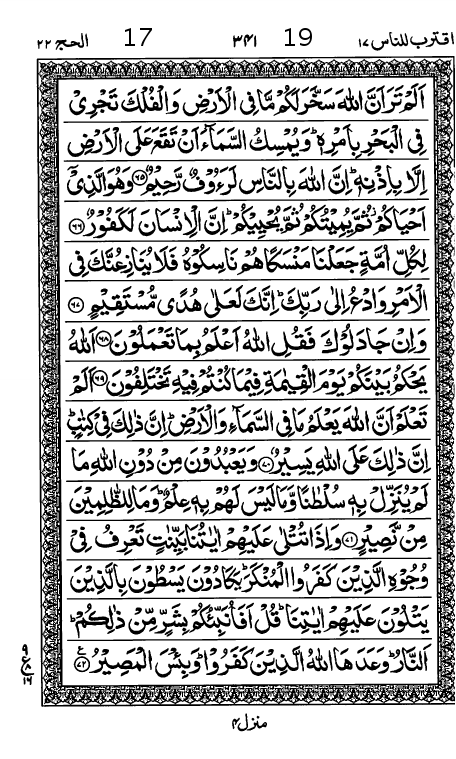 اقترب للناس ١٧ 19 ٣٤١ 17 الحج ٢٢
اَلَمْ تَرَ اَنَّ اللّٰهَ سَخَّرَ لَكُمْ مَّا فِی الْاَرْضِ وَالْفُلْكَ تَجْرِیْ
فِی الْبَحْرِ بِاَمْرِهٖؕ وَیُمْسِكُ السَّمَآءَ اَنْ تَقَعَ عَلَی الْاَرْضِ
اِلَّا بِاِذْنِهٖؕ اِنَّ اللّٰهَ بِالنَّاسِ لَرَءُوْفٌ رَّحِیْمٌ ۝٦٥ وَهُوَ الَّذِیْۤ
اَحْیَاكُمْؗ ثُمَّ یُمِیْتُكُمْ ثُمَّ یُحْیِیْكُمْؕ اِنَّ الْاِنْسَانَ لَكَفُوْرٌ ۝٦٦
لِكُلِّ اُمَّةٍ جَعَلْنَا مَنْسَكًا هُمْ نَاسِكُوْهُ فَلَا یُنَازِعُنَّكَ فِی
الْاَمْرِ وَادْعُ اِلٰی رَبِّكَؕ اِنَّكَ لَعَلٰی هُدًی مُّسْتَقِیْمٍ ۝٦٧
وَاِنْ جَادَلُوْكَ فَقُلِ اللّٰهُ اَعْلَمُ بِمَا تَعْمَلُوْنَ ۝٦٨ اَللّٰهُ
یَحْكُمُ بَیْنَكُمْ یَوْمَ الْقِیٰمَةِ فِیْمَا كُنْتُمْ فِیْهِ تَخْتَلِفُوْنَ ۝٦٩ اَلَمْ
تَعْلَمْ اَنَّ اللّٰهَ یَعْلَمُ مَا فِی السَّمَآءِ وَالْاَرْضِؕ اِنَّ ذٰلِكَ فِیْ كِتٰبٍؕ
اِنَّ ذٰلِكَ عَلَی اللّٰهِ یَسِیْرٌ ۝٧٠ وَیَعْبُدُوْنَ مِنْ دُوْنِ اللّٰهِ مَا
لَمْ یُنَزِّلْ بِهٖ سُلْطٰنًا وَّمَا لَیْسَ لَهُمْ بِهٖ عِلْمٌؕ وَمَا لِلظّٰلِمِیْنَ
مِنْ نَّصِیْرٍ ۝٧١ وَاِذَا تُتْلٰی عَلَیْهِمْ اٰیٰتُنَا بَیِّنٰتٍ تَعْرِفُ فِیْ
وُجُوْهِ الَّذِیْنَ كَفَرُوا الْمُنْكَرَؕ یَكَادُوْنَ یَسْطُوْنَ بِالَّذِیْنَ
یَتْلُوْنَ عَلَیْهِمْ اٰیٰتِنَاؕ قُلْ اَفَاُنَبِّئُكُمْ بِشَرٍّ مِّنْ ذٰلِكُمْؕ
اَلنَّارُؕ وَعَدَهَا اللّٰهُ الَّذِیْنَ كَفَرُوْاؕ وَبِئْسَ الْمَصِیْرُ ۝٧٢
منزل ٤